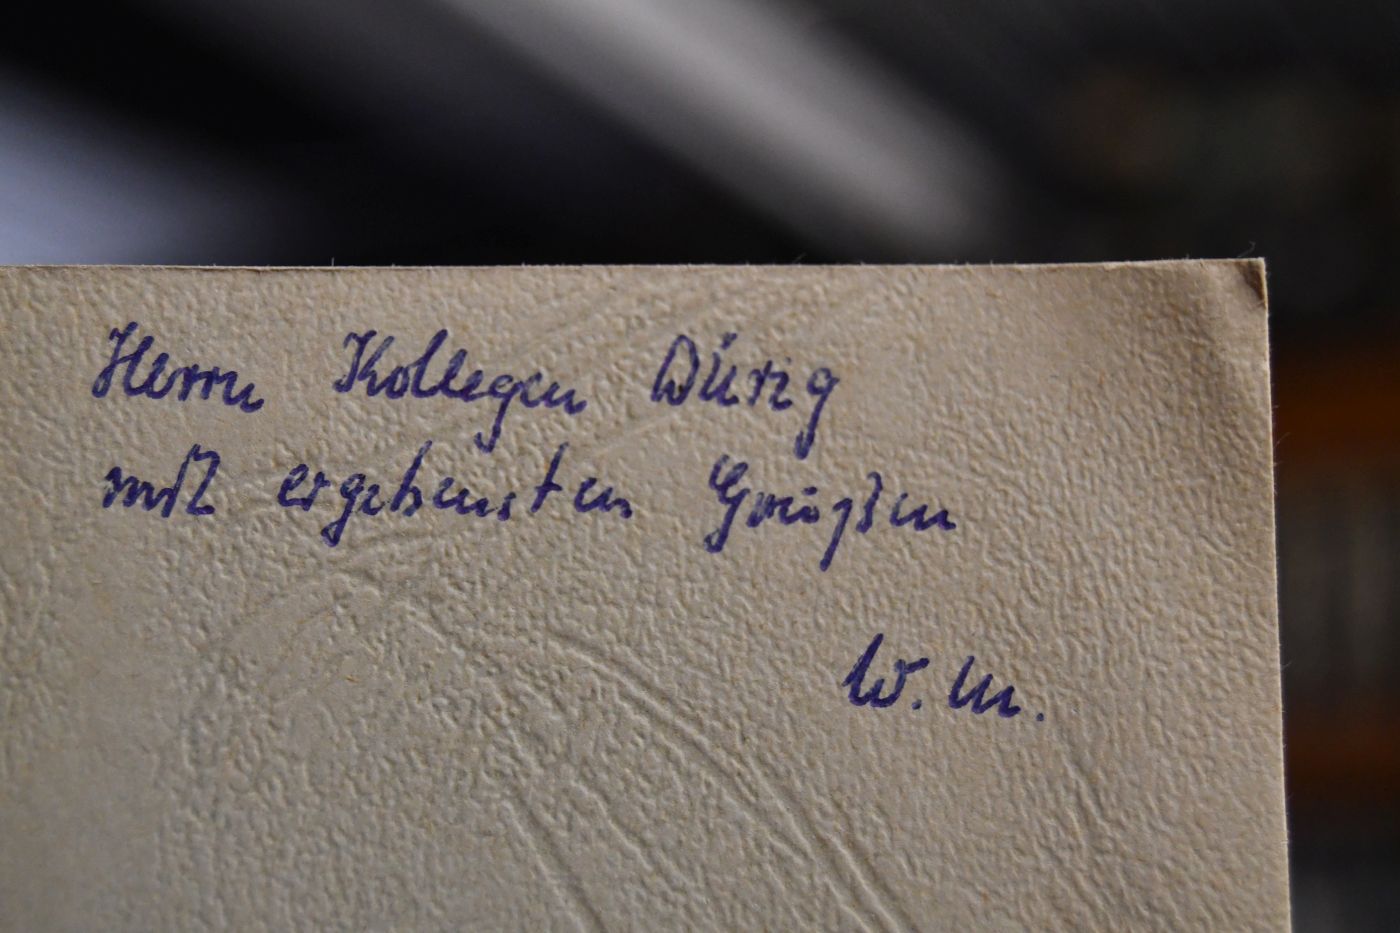 Herrn Kollegen Dürig
mit ergebensten Grüßen
W. M.